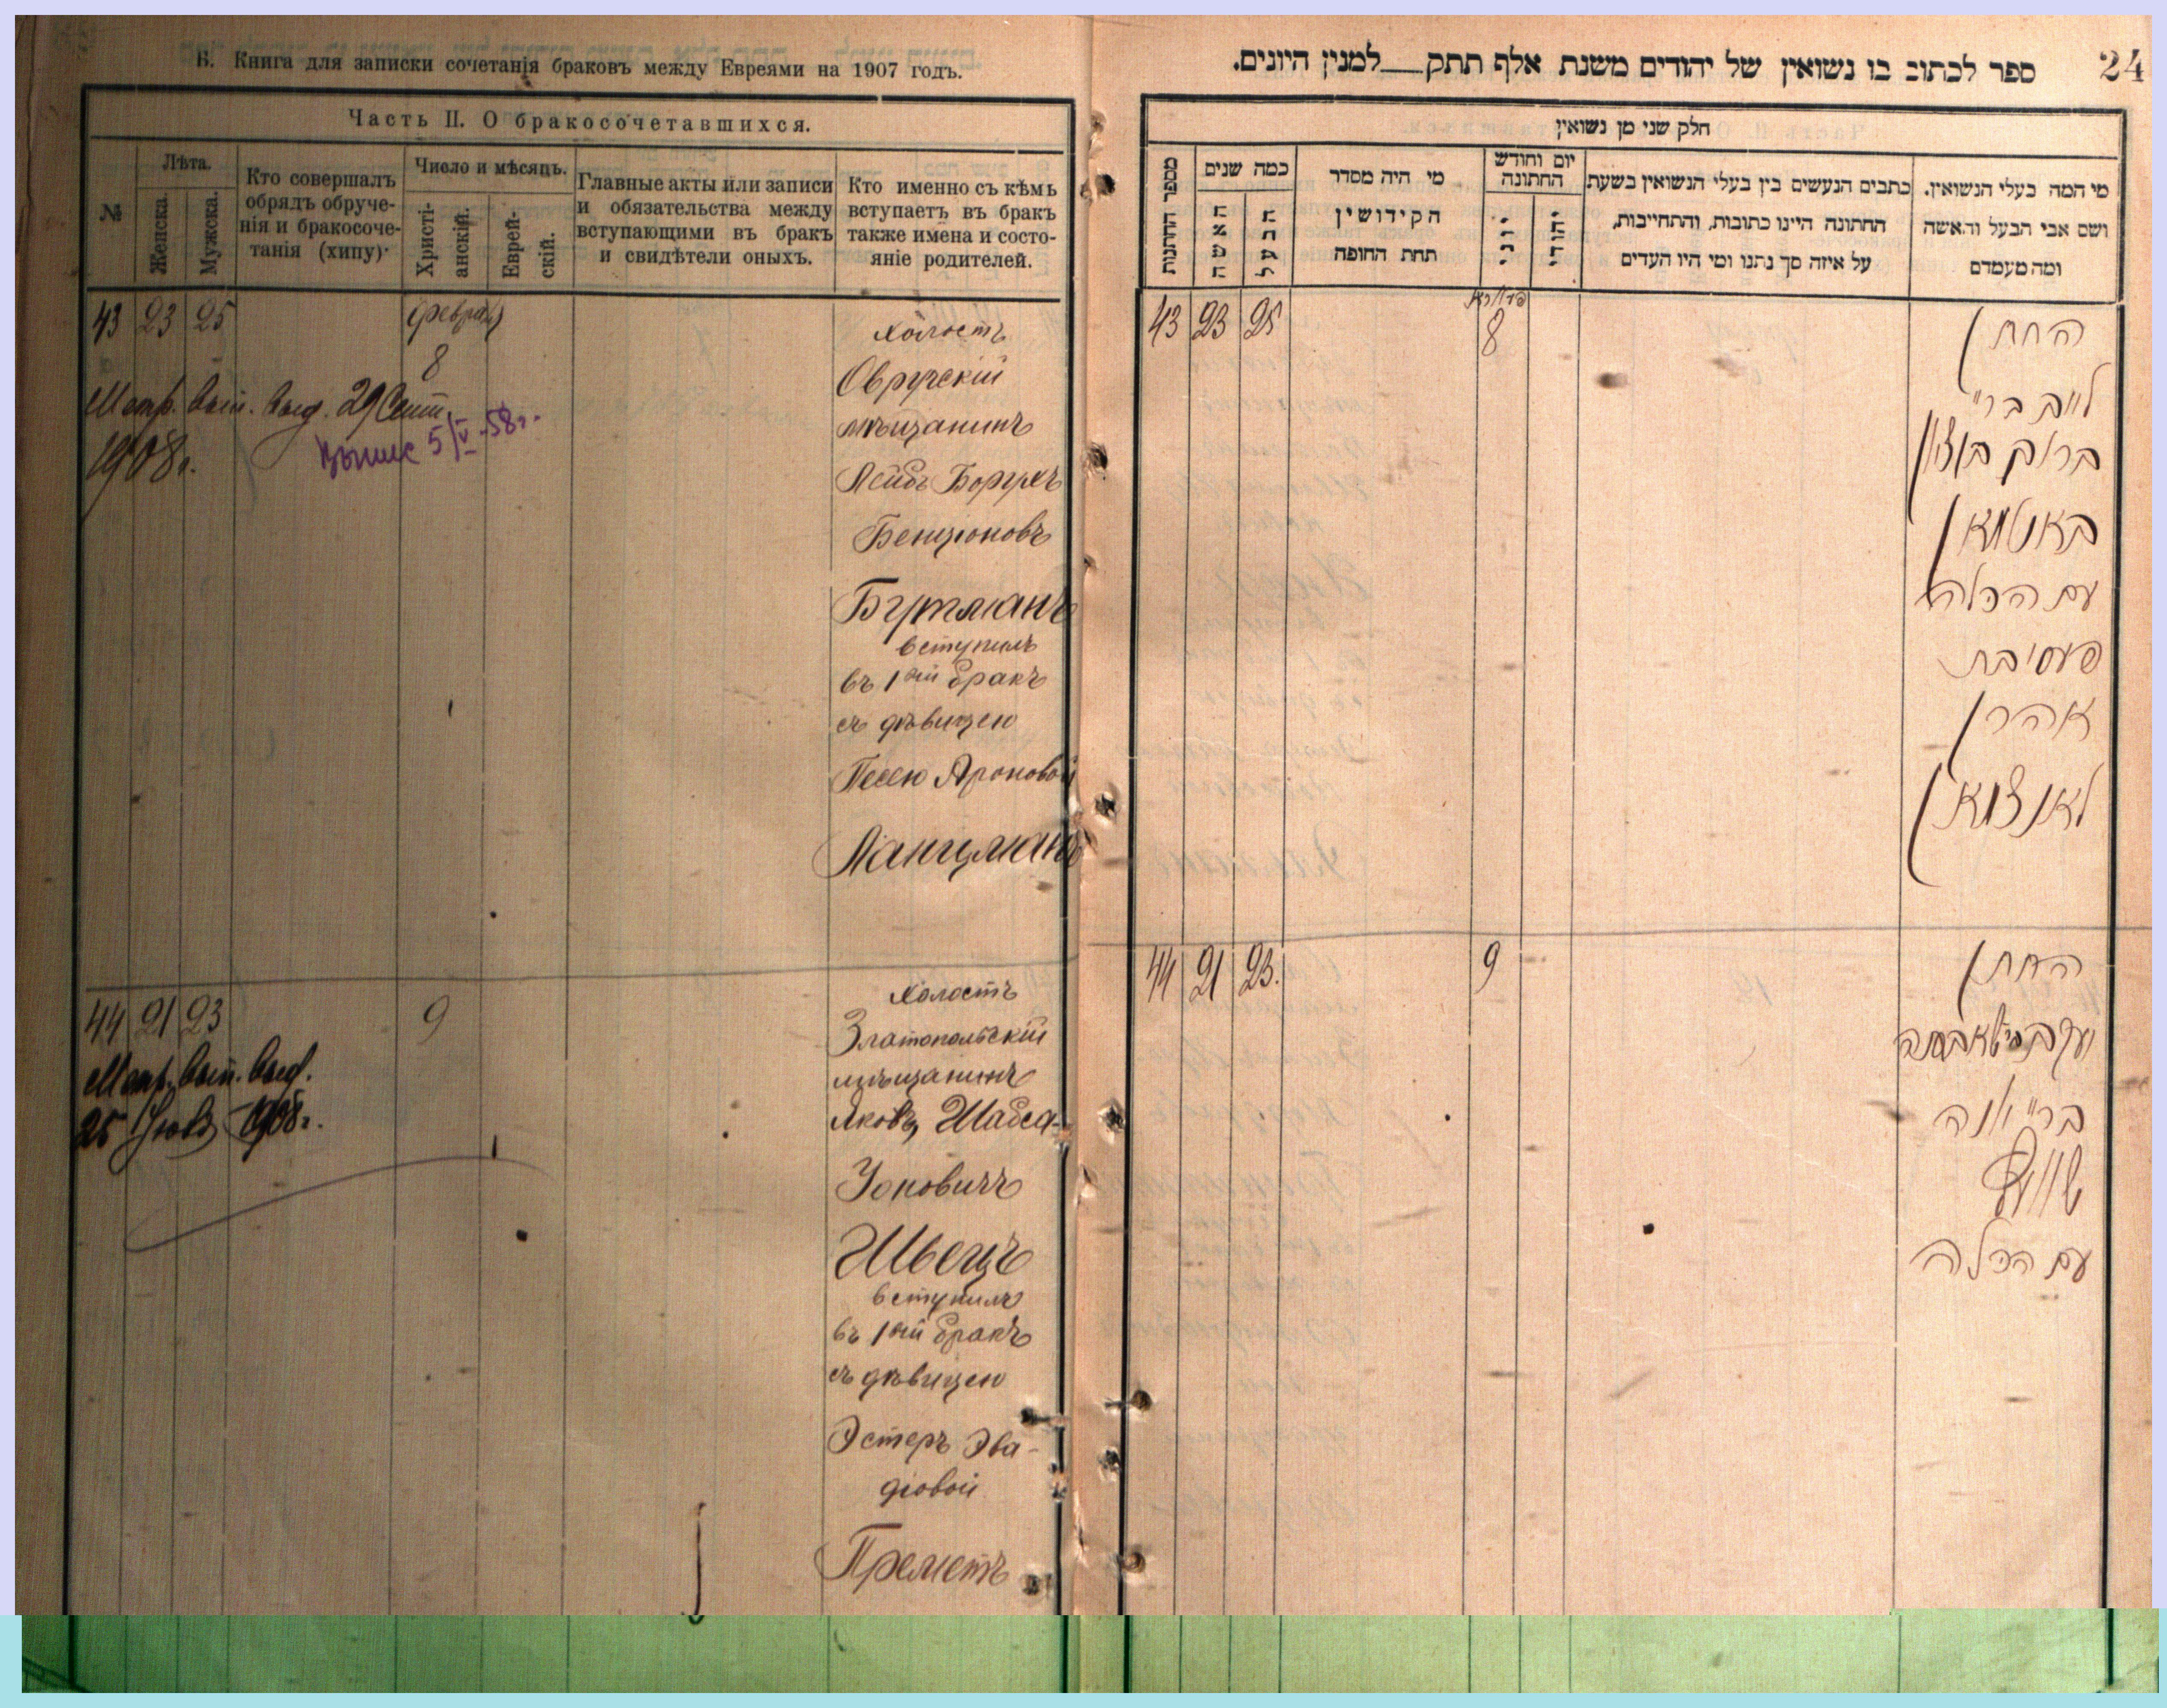 Б. Книга для записки сочетанія браковъ между Евреями на 1907 годъ.
Часть II. О бракосочетавшихся.
№
Лѣта.
Женска.
Мужска.
Кто совершалъ
обрядъ обруче-
нія и бракосоче-
танія (хипу)
Число и мѣсяцъ.
Христі-
анскій.
Еврей-
скій.
Главные акты или записи
и обязательства между
вступающими въ бракъ
и свидѣтели оныхъ.
Кто именно съ кѣмь
вступаетъ въ бракъ
также имена и состо-
яніе родителей.
43 23 25
8
Метр. вып. выд. 29 Сент.
1908 г.
5/V-58 г.
холостъ
Овручскій
мѣщанинъ
Лейбъ Борухъ
Бенціоновъ
Бутманъ
вступилъ
въ 1ый бракъ
съ дѣвицею
Песею Ароновой
Ланцманъ
44 21 23
9
Метр. вып. выд.
25 1908 г.
холостъ
Златопольскій
мѣщанинъ
Яковъ Шабса-
Іоновичъ
Швецъ
вступилъ
въ 1ый бракъ
съ дѣвицею
Эстеръ Эва-
діовой
Преметъ
24
ספר לכתוב בו נשואין של יהודים משנת אלף תתק למנין היונים.
חלק שני מן נשואין
מספר החתונות
כמה שנים
האשה
הבעל
מי היה מסדר
הקידושין
תחת החופה
יום וחודש
החתונה
יוני
יהודי
כתבים הנעשים בין בעלי הנשואין בשעת
החתונה היינו כתובות, והתחייבות,
על איזה סך נתנו ומי היו העדים
מי המה בעלי הנשואין.
ושם אבי הבעל והאשה
ומה מעמדם
43 23 25
8
החתן
לייב ב״ר
ברוך בן ציון
באטמאן
עם הכלה
פעסי בת
אהרן
לאנצמאן
44 21 23.
9
החתן
ב״ר יונה
שוועץ
עם הכלה